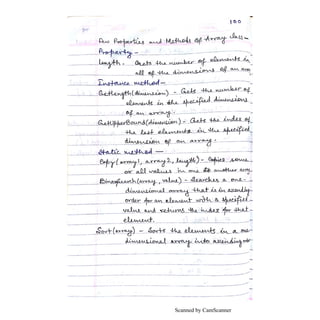 100
Few Properties and Methods Of Array class -
Property -
length. Gets the number of elements in
all of the dimensions of an
Instance method -
GetLength(dimension) - Gets the number of
elements in the specified dimensions
of an array.
GetUpperBound(dimension) - Gets the index of
the last element in the specified
dimension of an array.
Static method -
Copy(array1, array2, length) - Copies some
or all values in one to another
BinarySearch(array, value) - Searches a one-
dimensional array that is in
order for an element with a specified
value and returns the index for that
element.
Sort(array) - Sorts the elements in a one
dimensional array into ascending
Scanned by CamScanner